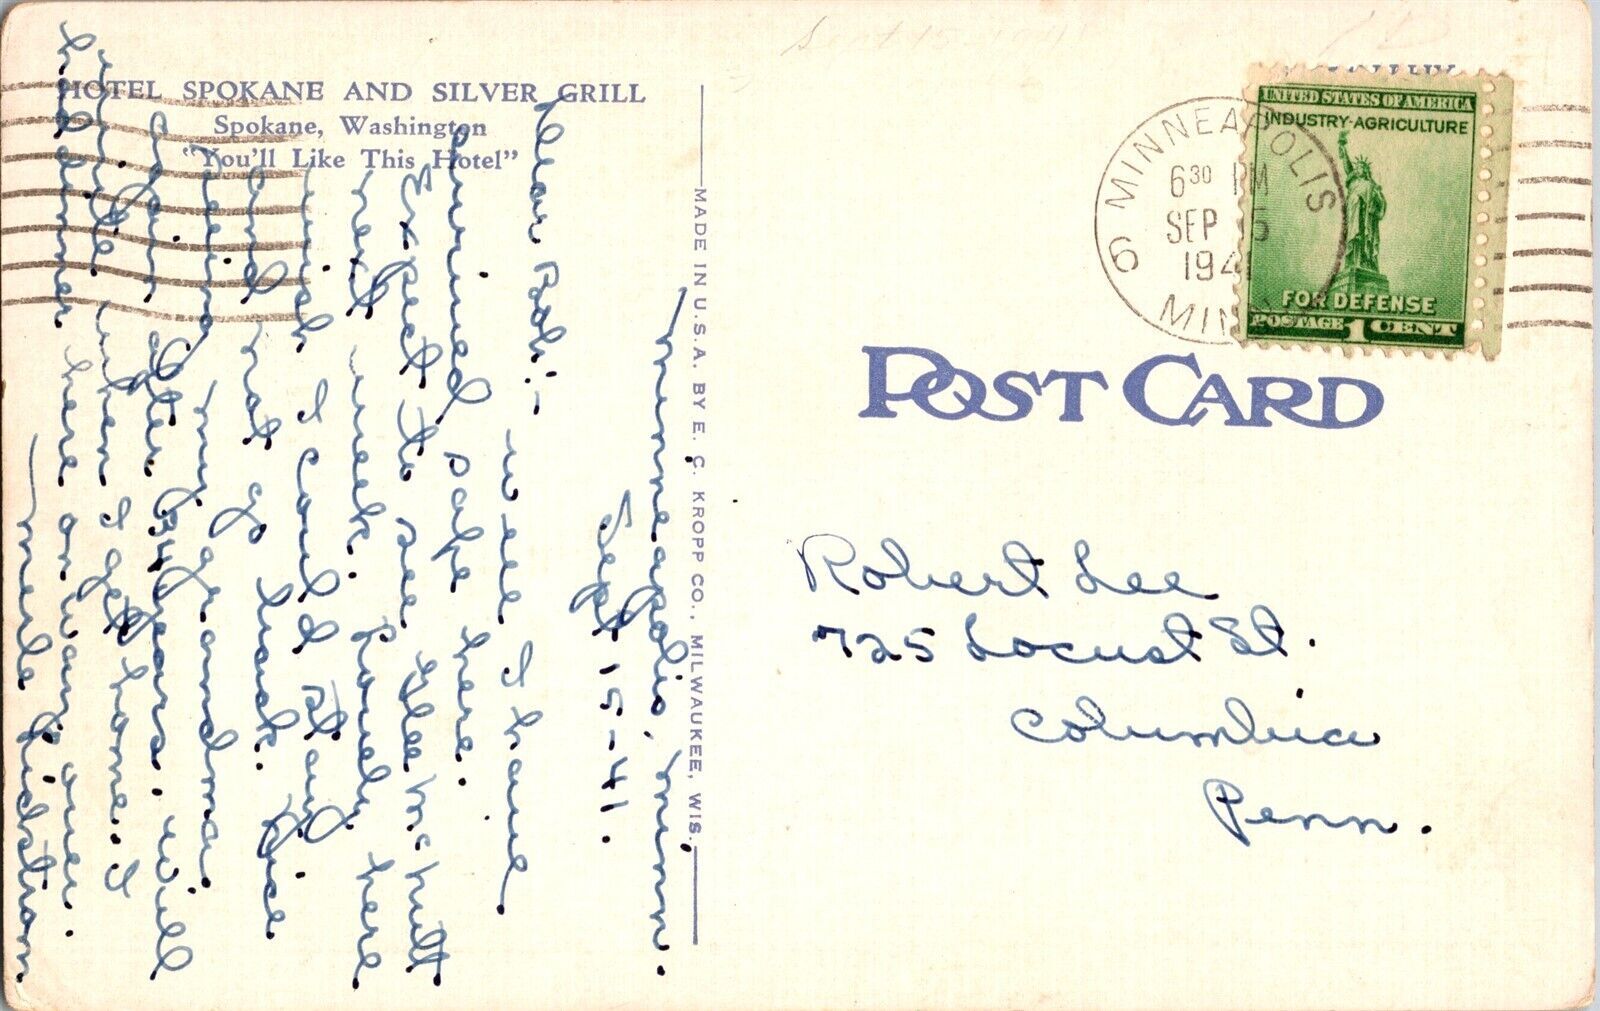 HOTEL SPOKANE AND SILVER GRILL
Spokane, Washington
"You'll Like This Hotel"
Minneapolis, Minn.
Sept 15-41.
Dear Bob:-
Well I have
arrived safe here.
Expect to see Glee McNutt
next week. Lovely here
wish I could stay
and not go back. Nice
seeing my grandma
again after 34 years. Will
write when I get home. I
had dinner here on way over.
Merle Lidstrom
MADE IN U.S.A. BY E. C. KROPP CO., MILWAUKEE, WIS.
Sept 15 1941
MINNEAPOLIS
6 30 PM
SEP 15
1941
MINN
6
UNITED STATES OF AMERICA
INDUSTRY-AGRICULTURE
FOR DEFENSE
POSTAGE 1 CENT
POST CARD
Robert Lee
725 Locust St.
Columbia
Penn.